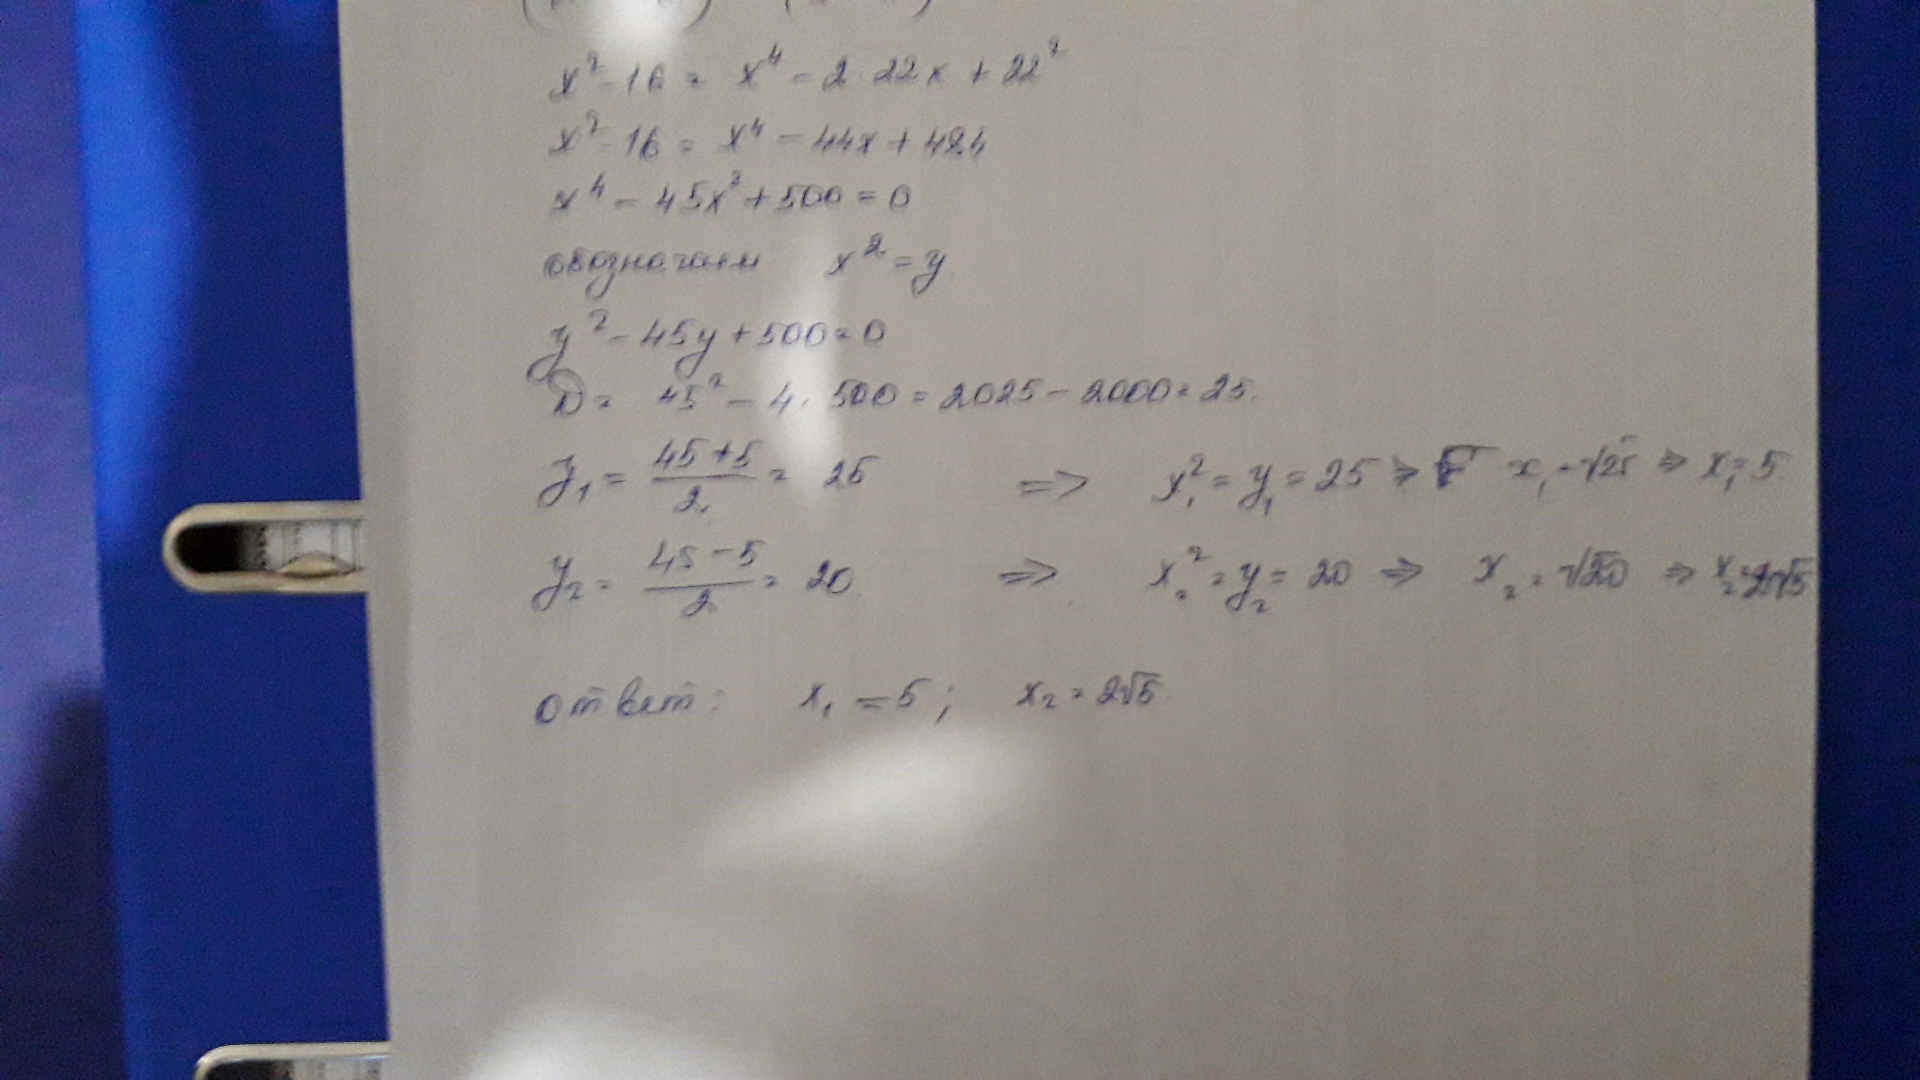 x² - 16 = x⁴ - 2·22x + 22²
x² - 16 = x⁴ - 44x + 484
x⁴ - 45x² + 500 = 0
обозначаем x² = y
y² - 45y + 500 = 0
D = 45² - 4·500 = 2025 - 2000 = 25.
y₁ = (45+5)/2 = 25 => x₁² = y₁ = 25 => x₁ = √25 => x₁ = 5.
y₂ = (45-5)/2 = 20. => x₂² = y₂ = 20 => x₂ = √20 => x₂ = 2√5
ответ: x₁ = 5; x₂ = 2√5.